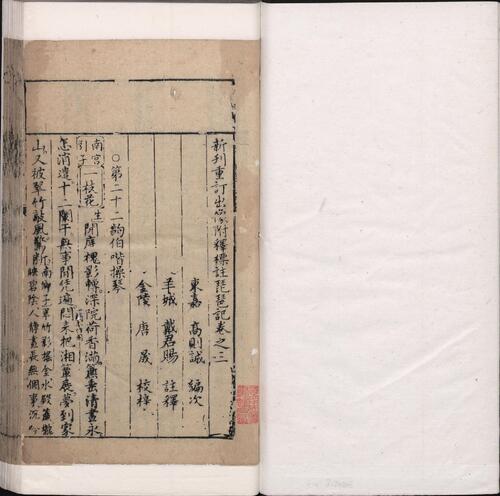 新刊重訂出像附釋標註琵琶記卷之三
東嘉 高則誠 編次
羊城 戴君賜 註釋
金陵 唐晟 校梓
○第二十二齣伯喈操琴
南宮引子 一枝花 生 閒庭槐影轉深院荷香滿簾垂清晝永
怎消遣十二闌干無事閒凭遍悶來把湘簟展夢到家
山又被翠竹敲風驚斷 南鄉子翠竹影搖金水殿簾櫳映碧陰人靜晝長無個事沉吟